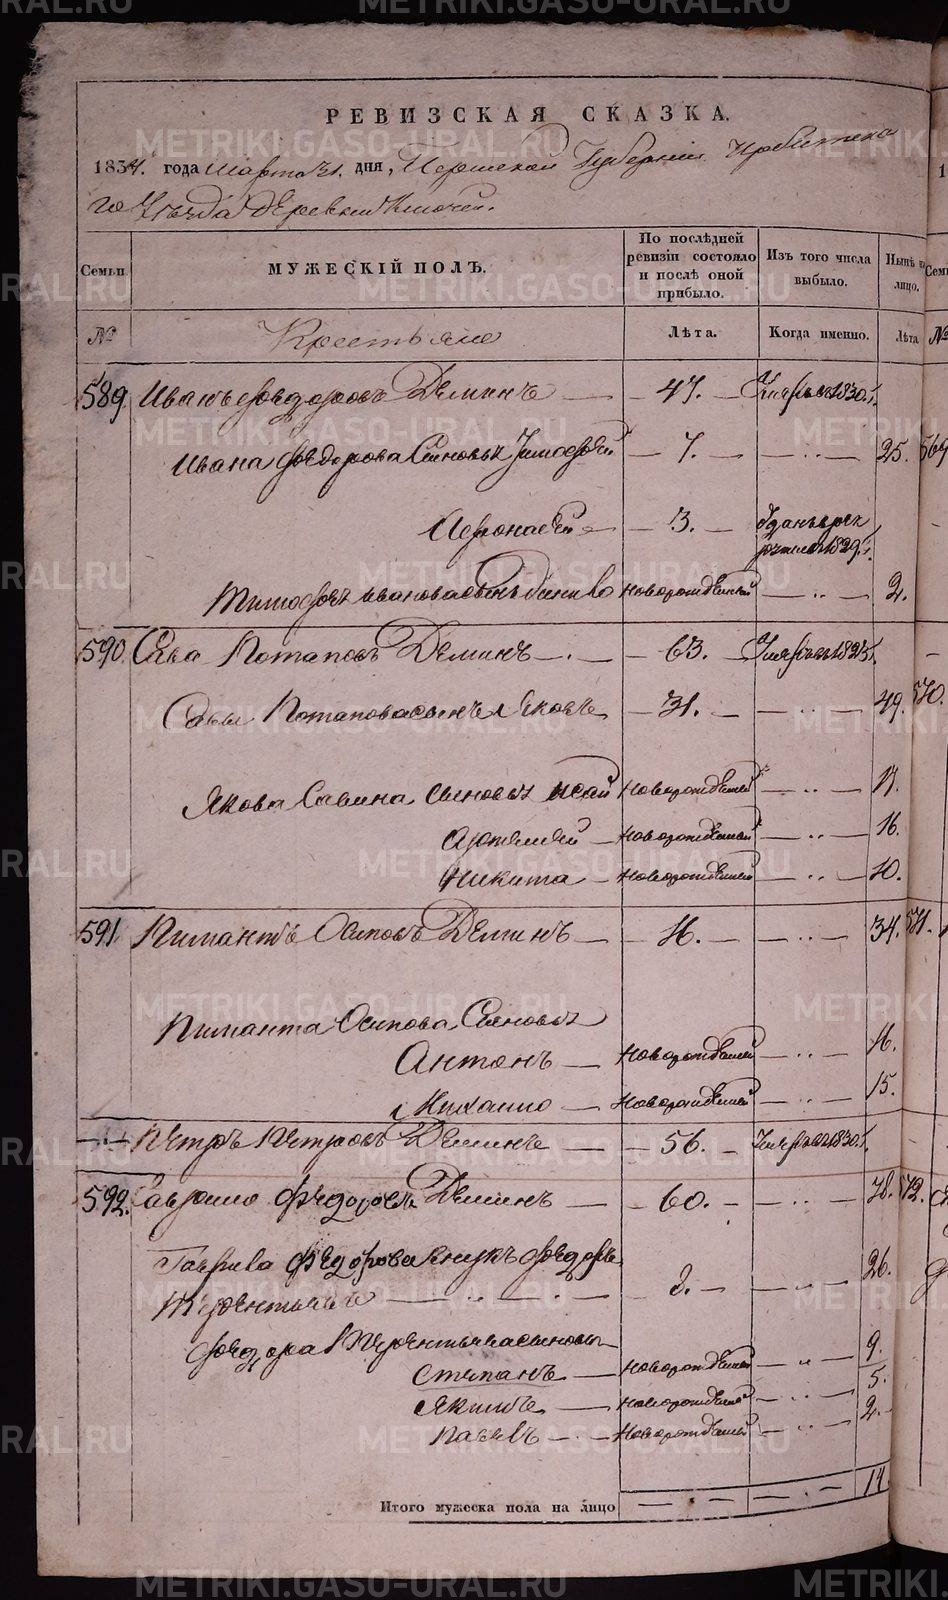 РЕВИЗСКАЯ СКАЗКА.
1834. года Марта 31. дня, Пермской Губернии Ирбитска
го Уезда деревни Ключей.
Семьи
МУЖЕСКІЙ ПОЛЪ.
По послѣдней ревизіи состояло и послѣ оной прибыло.
Изъ того числа выбыло.
Нынѣ на лицо.
№
Крестьяне
Лѣта.
Когда именно.
Лѣта
589 Иванъ Федоровъ Деминъ — 47. — 1830
Ивана Федорова Сыновья — 7. — 25. 569
— 3. — 1829
Тимофея Иванова сынъ новорожденный — 2.
590. Сава Потаповъ Деминъ — 63. —
Савы Потапова сынъ Яковъ — 31. — 49. 570.
Якова Савина сыновья Исай новорожденный —
новорожденный — 16.
Никита — новорожденный — 10.
591 Пимантъ Осиповъ Деминъ — 16. — 34. 571.
Пиманта Осипова Сыновья
Антонъ — новорожденный — 16.
Михайло — новорожденный — 15.
Петръ Петровъ Деминъ — 56. 1830
592. Гаврило Федоровъ Деминъ — 60. — 78. 572.
Гаврила Федорова внукъ Федоръ
Терентьевъ — 26.
Федора Терентьева сыновья
Степанъ — новорожденный — 9.
Якимъ — новорожденный — 5.
Павелъ — новорожденный — 2.
Итого мужеска пола на лицо 14.
METRIKI.GASO-URAL.RU